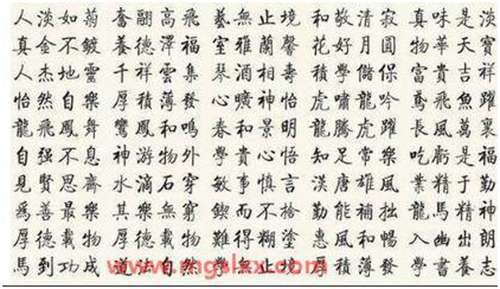 人淡如菊 奮翮高飛 藝無止境 和敬清寂 真味是淡
真金不鍍 養德澤福 室雅蘭馨 花好月圓 物華天寶
人杰地靈 千祥雲集 琴酒相壽 積學儲保 富貴吉祥
怡然自樂 厚積薄發 心曠神怡 虎嘯龍吟 鳶飛魚躍
龍飛鳳舞 鸞鳳和鳴 春和景明 龍騰虎躍 長風萬裏
自强不息 神游物外 和貴心悟 知足常樂 吃虧是福
見賢思齋 水滴石穿 敏事慎言 漢唐雄風 業精于勤
爲善最樂 其樂無窮 鍥而不捨 勤能補拙 龍馬精神
厚德載物 難得糊塗 惠風和暢 入幽出朗
馬到功成 道法自然 學無止境 厚積薄發 學書養志